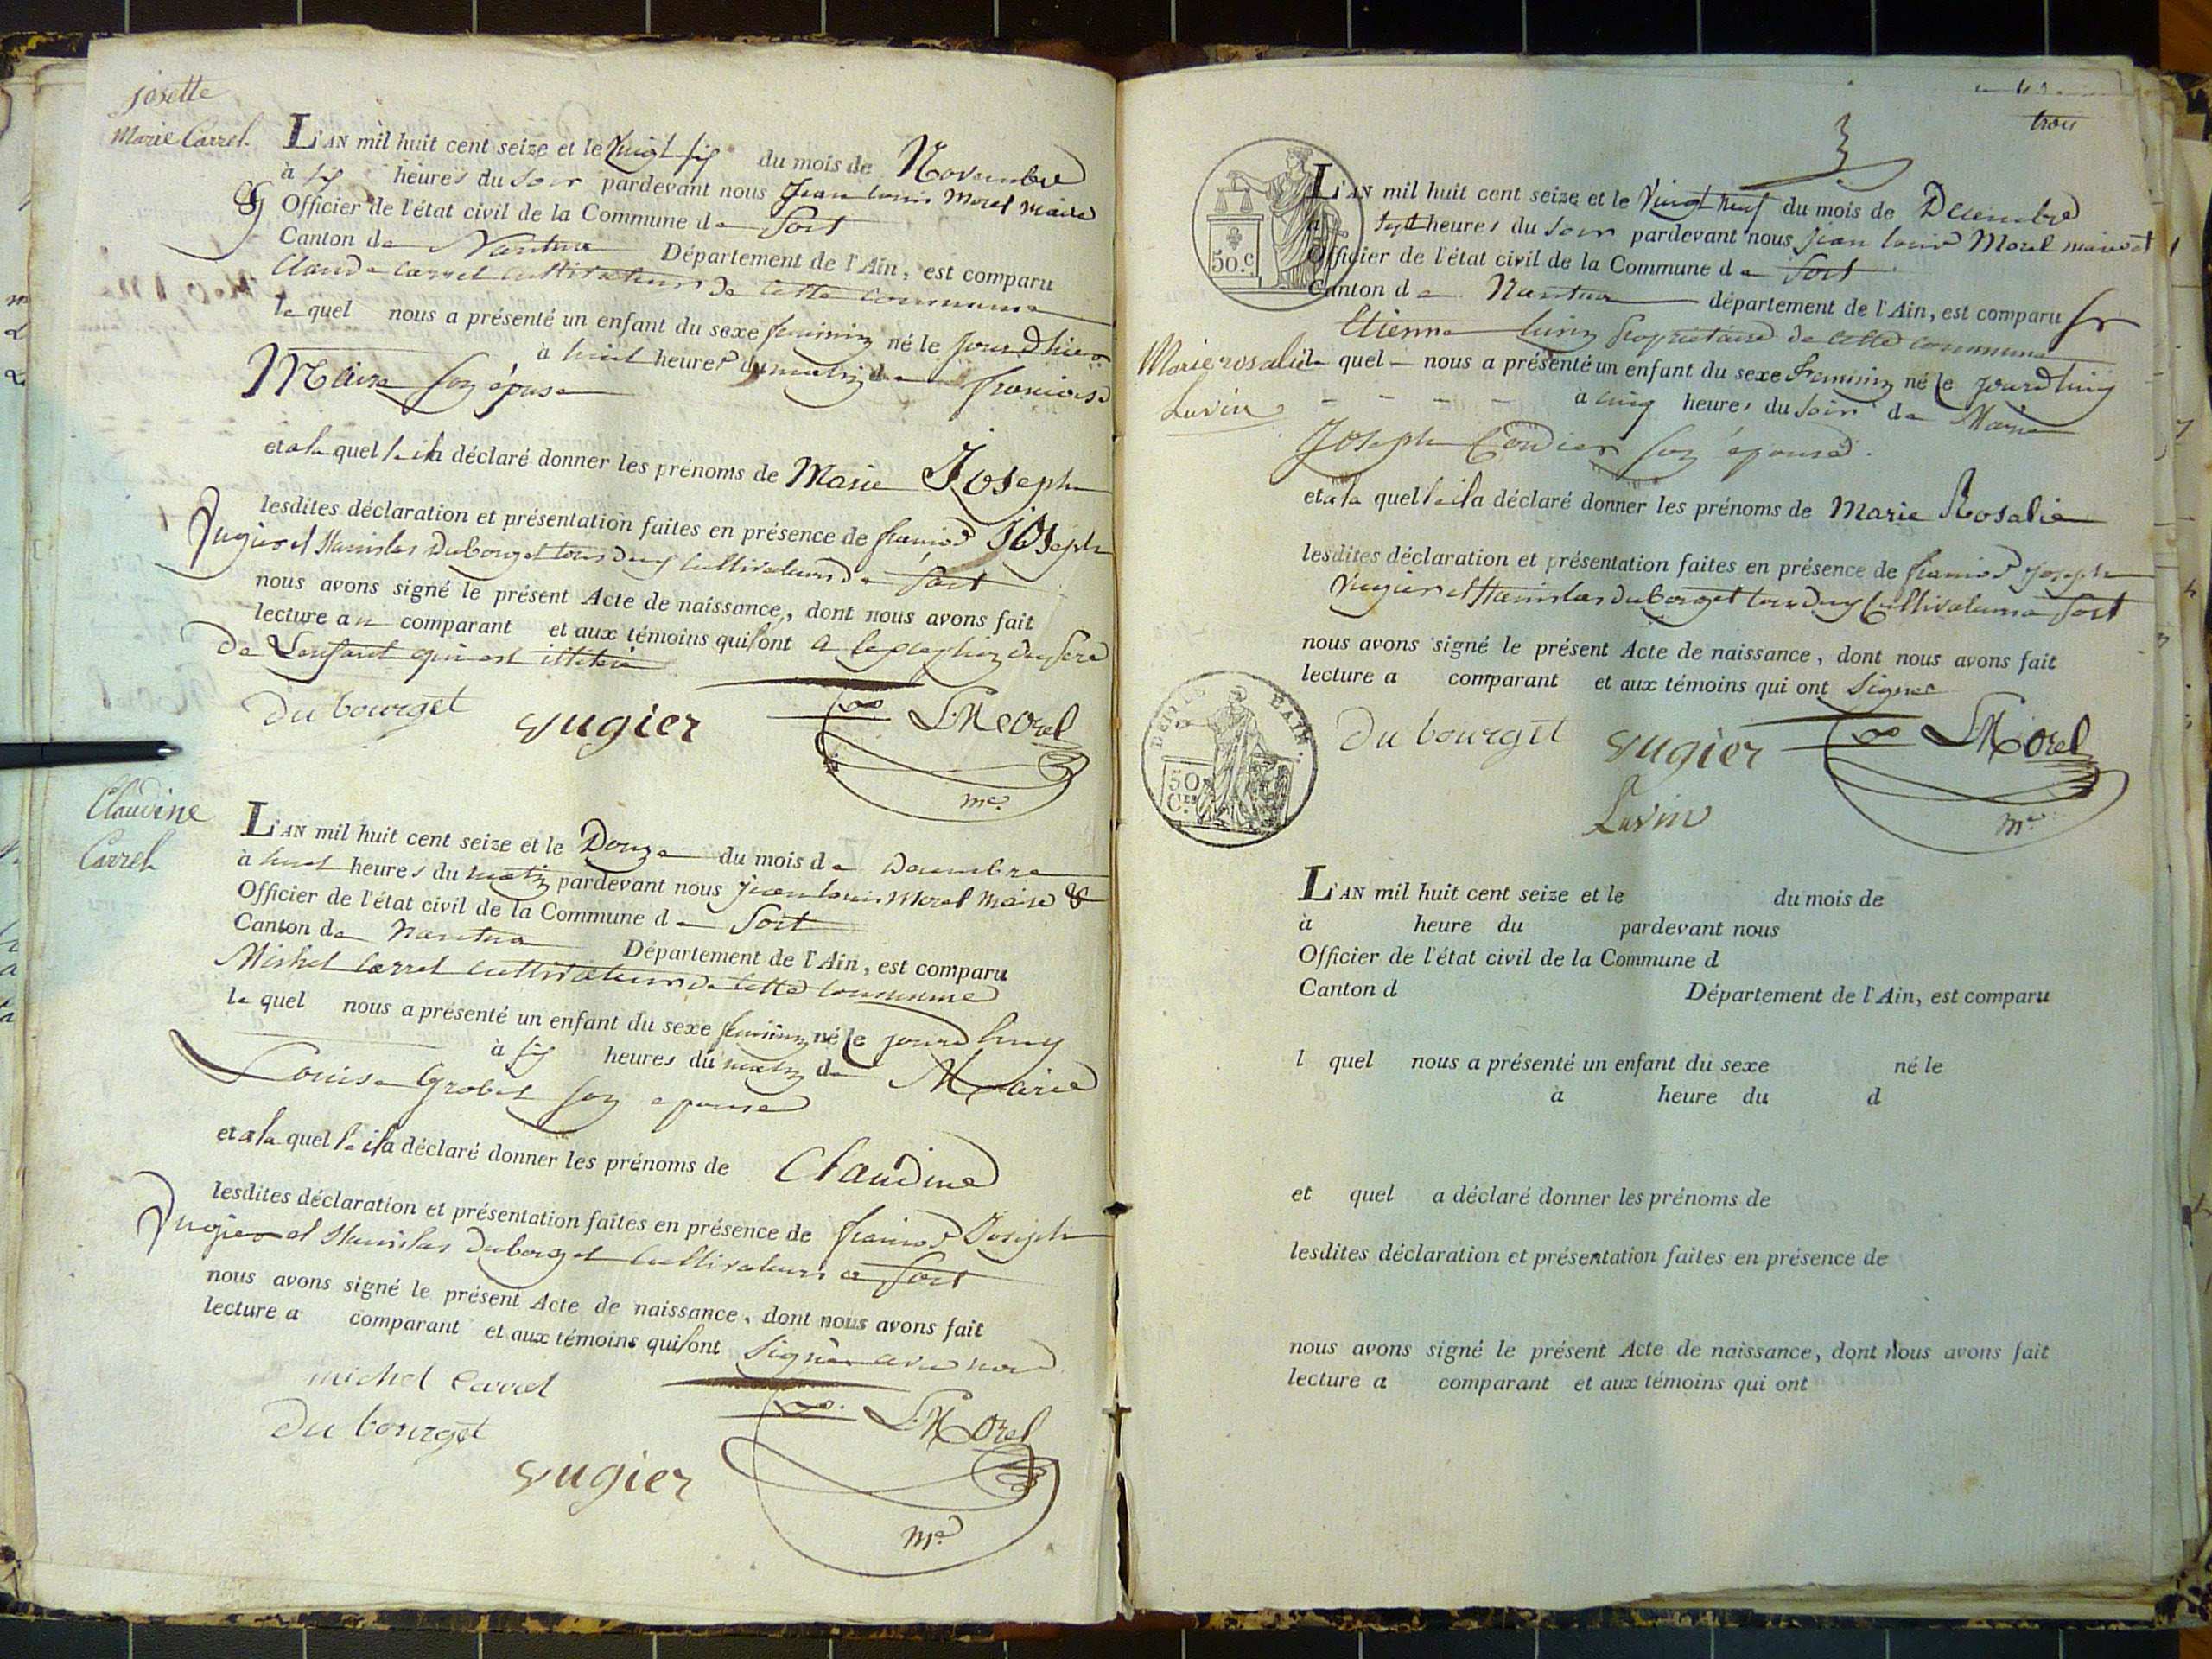 josette
Marie Carrel
L'AN mil huit cent seize et le Vingt six du mois de Novembre
à six heures du soir pardevant nous Jean louis Morel maire
& Officier de l'état civil de la Commune de Port
Canton de Nantua Département de l'Ain, est comparu
Claude Carrel Cultivateur de cette commune
le quel nous a présenté un enfant du sexe feminin né le jourdhier
à huit heures du matin de francoise
Maire son épouse
et a la quelle il a déclaré donner les prénoms de Marie Joseph
lesdites déclaration et présentation faites en présence de francois Joseph
Vugier et Stanislas Dubourget tous deux Cultivateurs de Port
nous avons signé le présent Acte de naissance, dont nous avons fait
lecture au comparant et aux témoins qui sont a du pere
De Lenfant qui est
du bourget vugier L. Morel
me.
Claudine
Carrel
L'AN mil huit cent seize et le Douze du mois de Decembre
à huit heures du matin pardevant nous jean louis Morel Maire &
Officier de l'état civil de la Commune de Port
Canton de Nantua Département de l'Ain, est comparu
Michel Carrel cultivateur de cette commune
le quel nous a présenté un enfant du sexe feminin né le jourdhuy
à six heures du matin de Marie
Louise Grobet son epouse
et a la quelle il a déclaré donner les prénoms de Claudine
lesdites déclaration et présentation faites en présence de francois Joseph
Vugier et Stanislas Dubourget Cultivateurs a Port
nous avons signé le présent Acte de naissance, dont nous avons fait
lecture a comparant et aux témoins qui sont signès avec nous
michel Carrel
du bourget L. Morel
vugier
Me.
trois
3
50.c
L'AN mil huit cent seize et le Vingt neuf du mois de Decembre
à sept heures du soir pardevant nous jean louis Morel maire et
Officier de l'état civil de la Commune de Port
Canton de Nantua département de l'Ain, est comparu Sr
Etienne Luvin propriétaire de cette commune
Marie rosalie
Luvin
le quel nous a présenté un enfant du sexe Feminin né le jourdhuy
à cinq heures du soir de Marie
Joseph Cordier son épouse.
et a la quelle il a déclaré donner les prénoms de Marie Rosalie
lesdites déclaration et présentation faites en présence de francois Joseph
Vugier et Stanislas du bourget tous deux Cultivateurs a Port
nous avons signé le présent Acte de naissance, dont nous avons fait
lecture a comparant et aux témoins qui ont signés
50
Ces
du bourget vugier L. Morel
Luvin
Me.
L'AN mil huit cent seize et le du mois de
à heure du pardevant nous
Officier de l'état civil de la Commune d
Canton d Département de l'Ain, est comparu
l quel nous a présenté un enfant du sexe né le
à heure du d
et quel a déclaré donner les prénoms de
lesdites déclaration et présentation faites en présence de
nous avons signé le présent Acte de naissance, dont nous avons fait
lecture a comparant et aux témoins qui ont